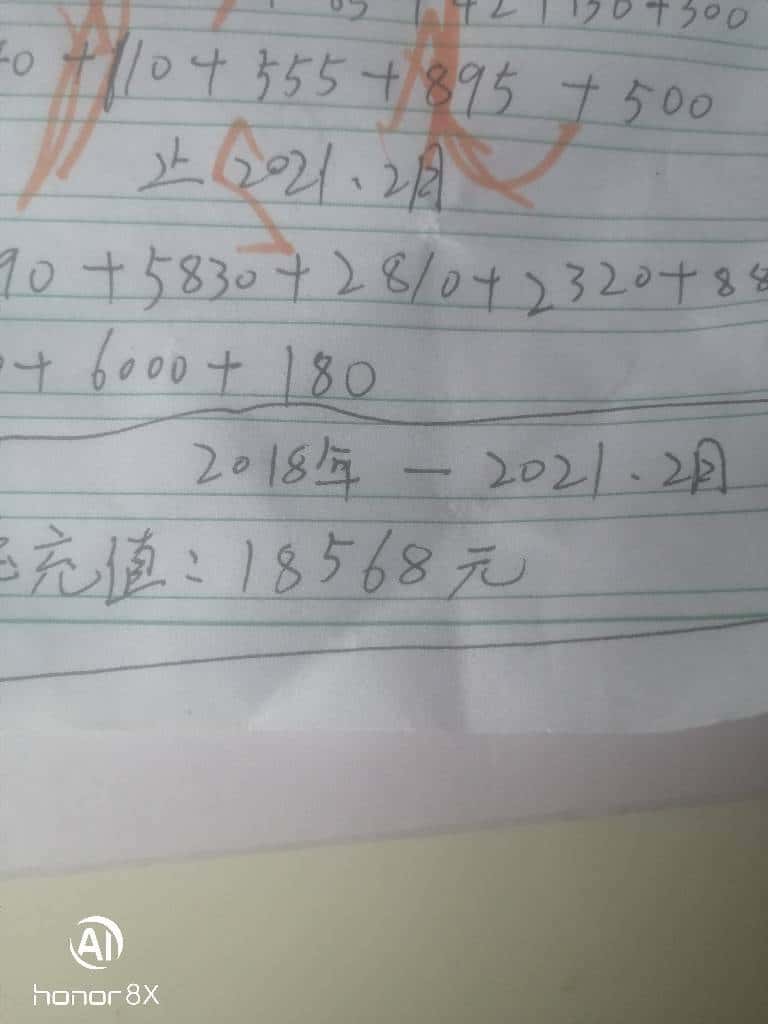 +130+300
0+110+555+895+500
止2021.2月
90+5830+2810+2320+88
+6000+180
2018年—2021.2月
充值:18568元
AI
honor 8X